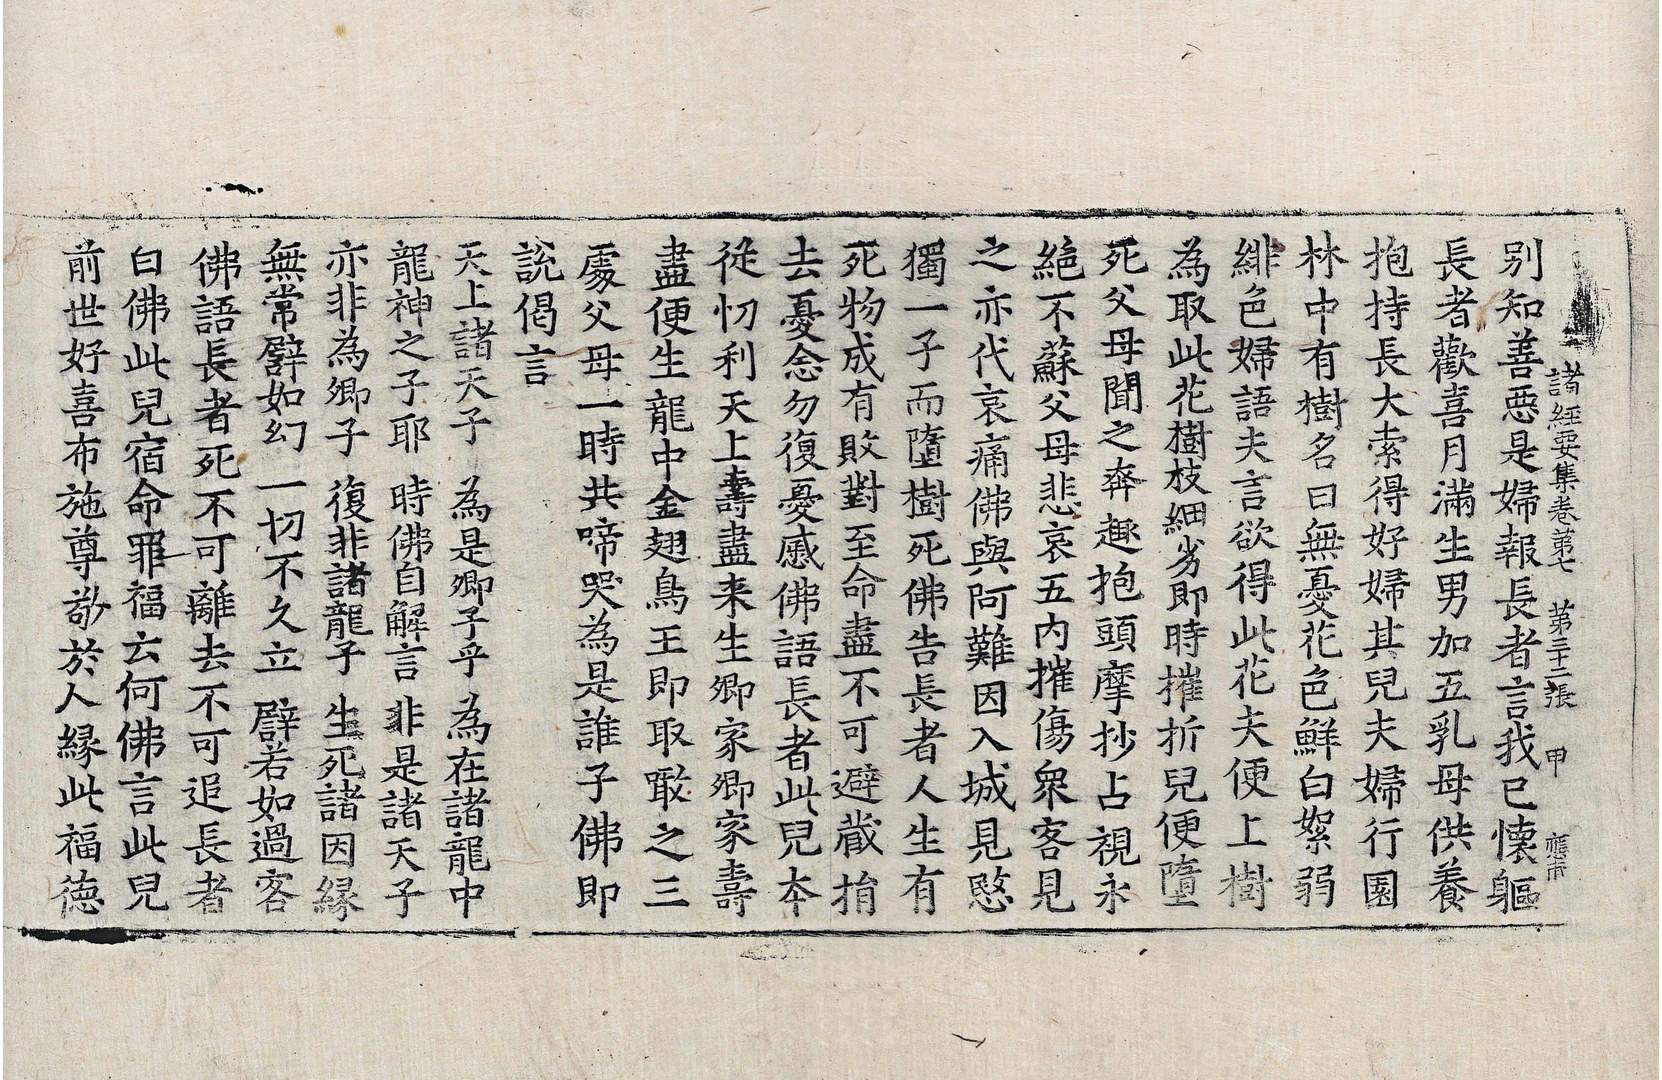 諸経要集卷第七 第三十二張 甲
别知善惡是婦報長者言我已懐軀
長者歡喜月滿生男加五乳母供養
抱持長大索得好婦其兒夫婦行園
林中有樹名曰無憂花色鮮白絮弱
緋色婦語夫言欲得此花夫便上樹
為取此花樹枝細劣即時摧折兒便墮
死父母聞之奔趣抱頭摩抄占視永
絕不蘇父母悲哀五內摧傷衆客見
之亦代哀痛佛與阿難因入城見愍
獨一子而墮樹死佛告長者人生有
死物成有敗對至命盡不可避藏捐
去憂念勿復憂慼佛語長者此兒本
從忉利天上壽盡来生卿家卿家壽
盡便生龍中金翅鳥王即取噉之三
處父母一時共啼哭為是誰子佛即
說偈言
天上諸天子 為是卿子乎 為在諸龍中
龍神之子耶 時佛自解言 非是諸天子
亦非為卿子 復非諸龍子 生死諸因縁
無常譬如幻 一切不久立 譬若如過客
佛語長者死不可離去不可追長者
白佛此兒宿命罪福云何佛言此兒
前世好喜布施尊敬於人緣此福德